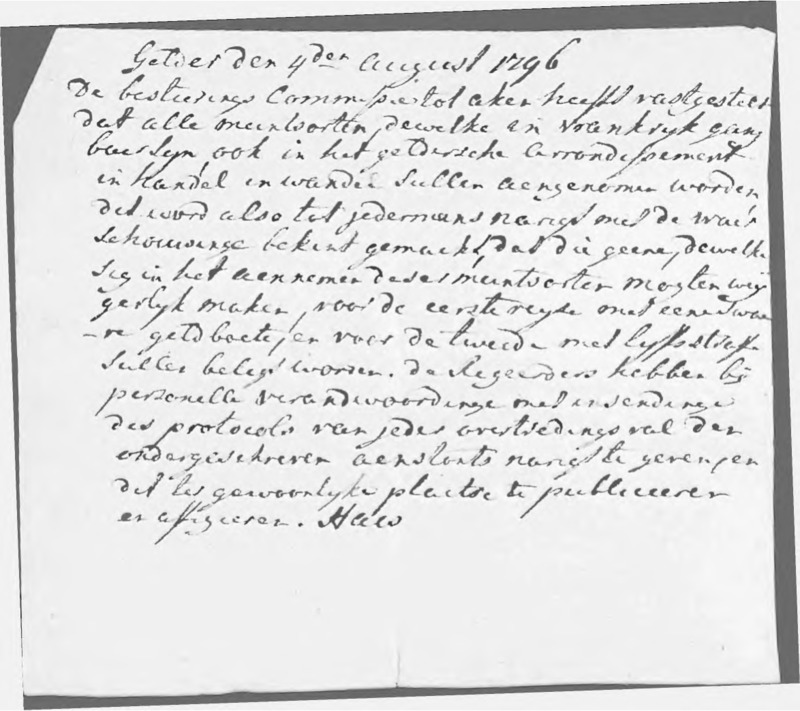 Gelder den 4den august 1796
De bestierings Commissie tot aken heeft vastgestelt
dat alle muntsorten, dewelke in vrankryk gang
baer syn, ook in het geldersche arrondissement
in handel en wandel sullen aengenomen worden
dit word also tot jedermans narigt met de waer
schouwinge bekent gemackt, dat die geene, dewelke
sig in het aennemen deser muntsorten mogten wey
gerlyk maken, voor de eerste reyse met eene swae
-re geldboete, en voor de tweede met lyfsstraffe
sullen belegt worden. de Regeerders hebben by
personelle verandwoordinge met insendinge
des protocols van jeder overtredings val den
ondergeschreven aenstonts narigt te geven, en
dit ter gewoonlyke plaetse te publiceeren
en affigieren. Haes